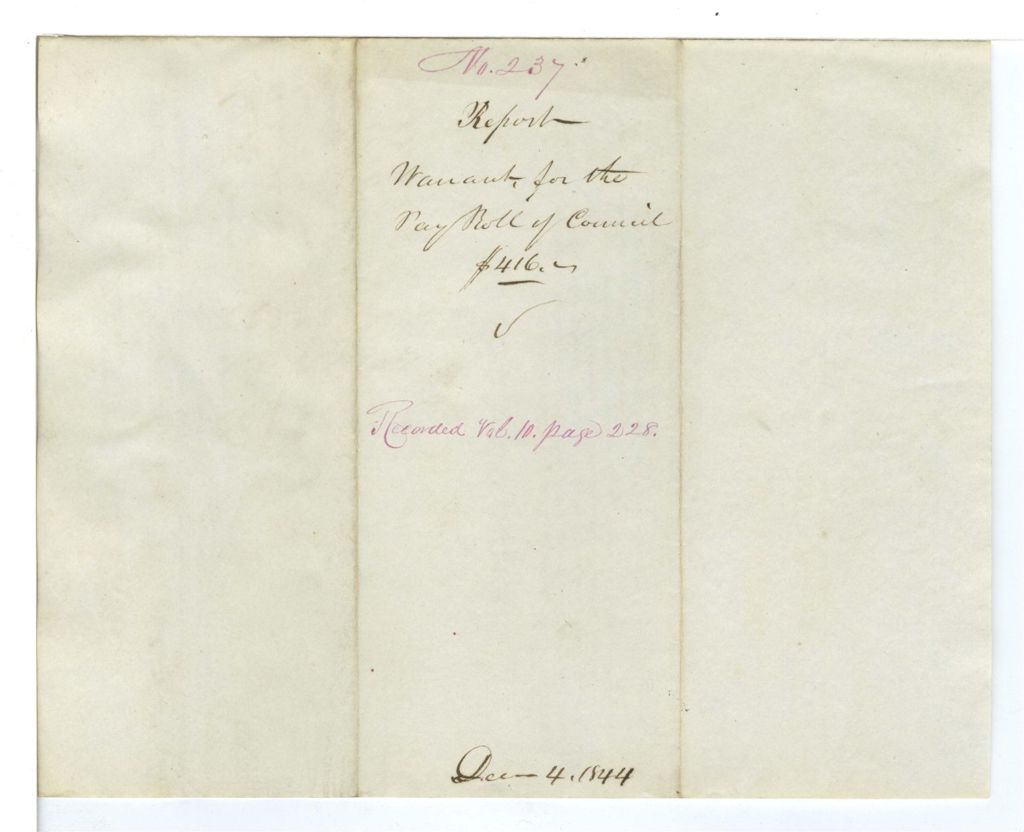 No. 237.
Report
Warrant, for the
Pay Roll of Council
$416. ~
✓
Recorded Vol. 10. page 228.
Dec 4. 1844